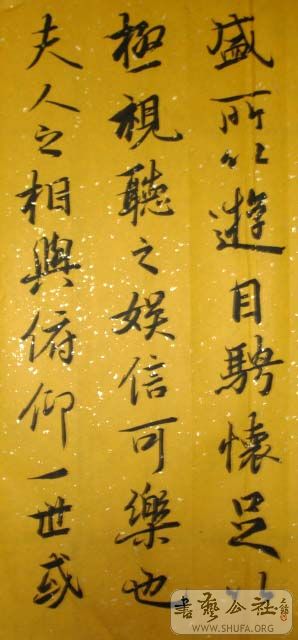 盛所以遊目騁懷足以
極視聽之娛信可樂也
夫人之相與俯仰一世或
書藝公社
WWW.SHUFA.ORG